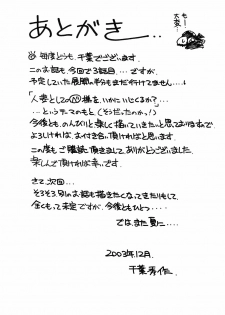 あとがき...
も〜
大変!
毎度どうも、千葉でございます。
このお話も、今回で3話目…ですが、
予定していた展開の半分もまだ行けてません……
「人妻としての 様を、いかにいじくるか?…
…というテーマのもと(そうだったのか!)
今後とも のんびりと楽しく描いていきたいと思っておりますので
よろしければ、お付き合い頂ければと思います。
この度も ご購読頂きまして ありがとうございました。
楽しんで頂ければ幸いです。
さて、次回…
そろそろ別のお話も描きたくなってきたりもして、
全くもって未定ですが、今後ともひとつ‥‥
では、また夏に‥‥
2003年12月.
千葉秀作.